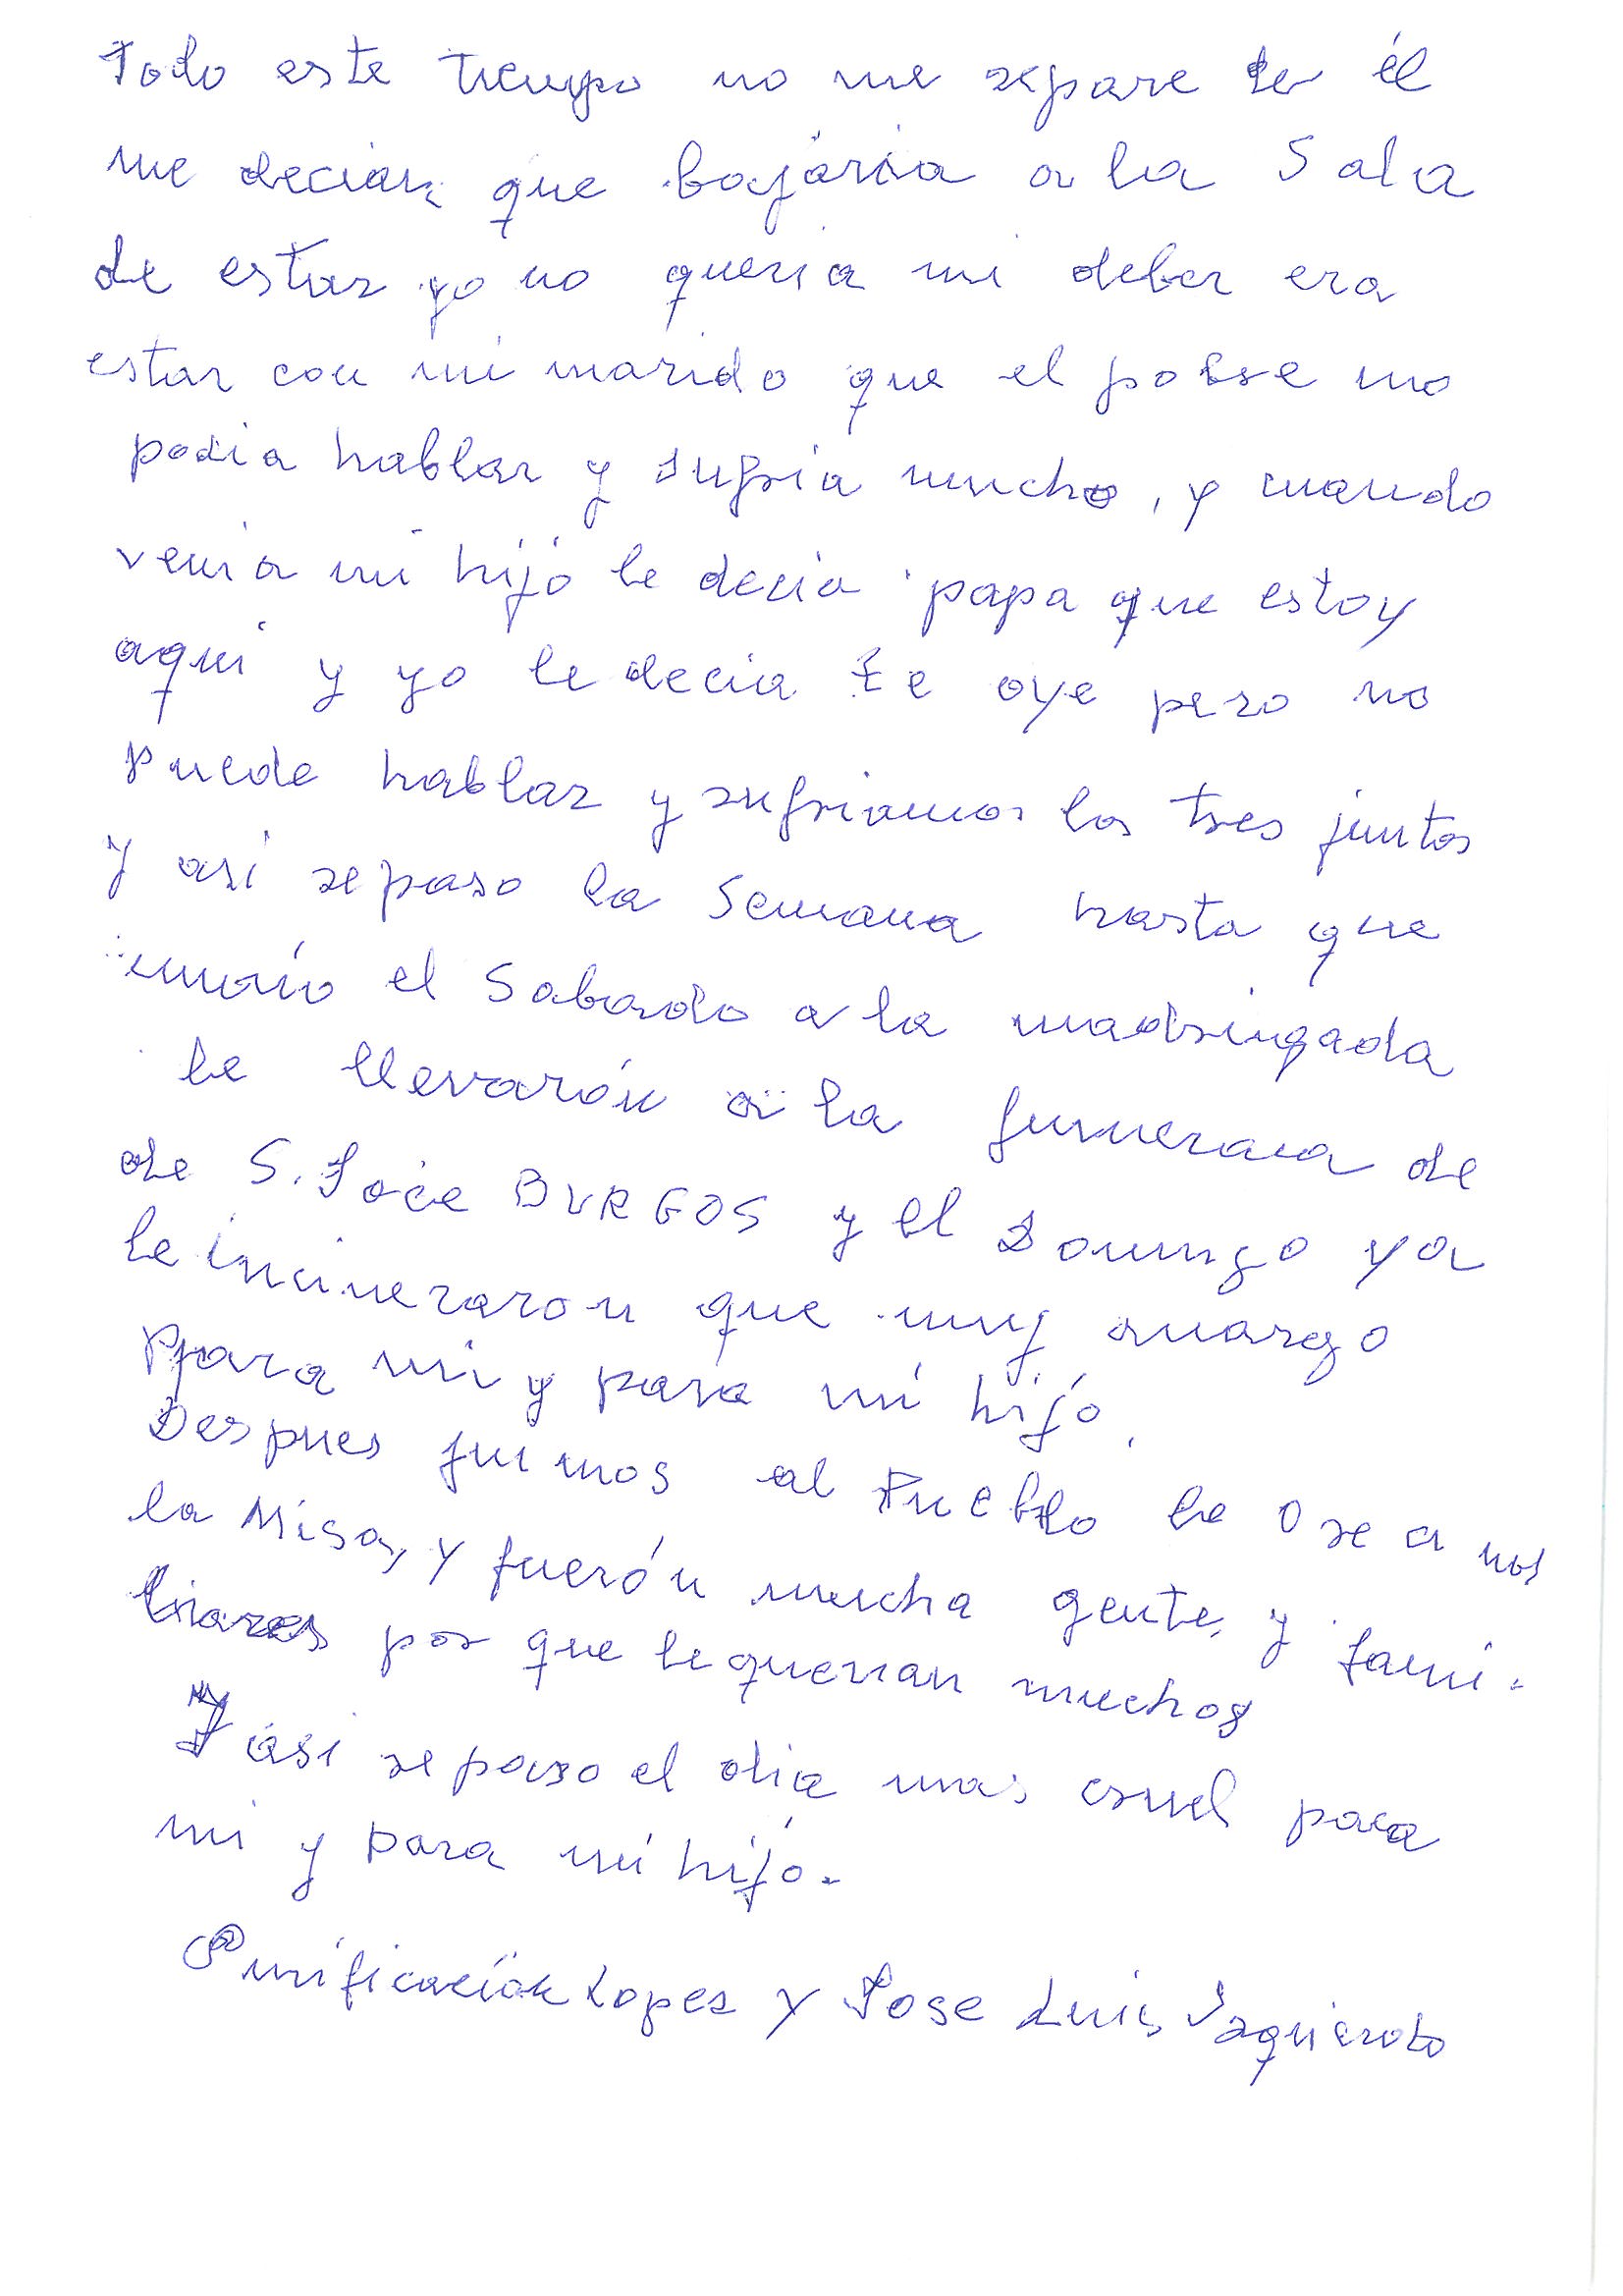 Todo este tiempo no me separe de él
me decian que bajária a la Sala
de estar yo no queria mi deber era
estar con mi marido que el pobre no
podia hablar y sufria mucho, y cuando
venia mi hijó le decia papa que estoy
aqui y yo le decia te oye pero no
puede hablar y sufriamos los tres juntos
y asi se paso la Semana hasta que
murío el Sabado a la madrugada
le llevarón a la funeraia de
de S. Jose BURGOS y el Domingo ya
le incineraron que muy amargo
Para mi y para mí hijó.
Despues fuimos al Pueblo le Ose a nos
la Misa, y fuerón mucha gente, y fami-
liares por que le querian muchos
Y ási se paso el dia mas cruel para
mi y para mí hijó.
Purificacíon Lopez y Jose Luis Izquierdo